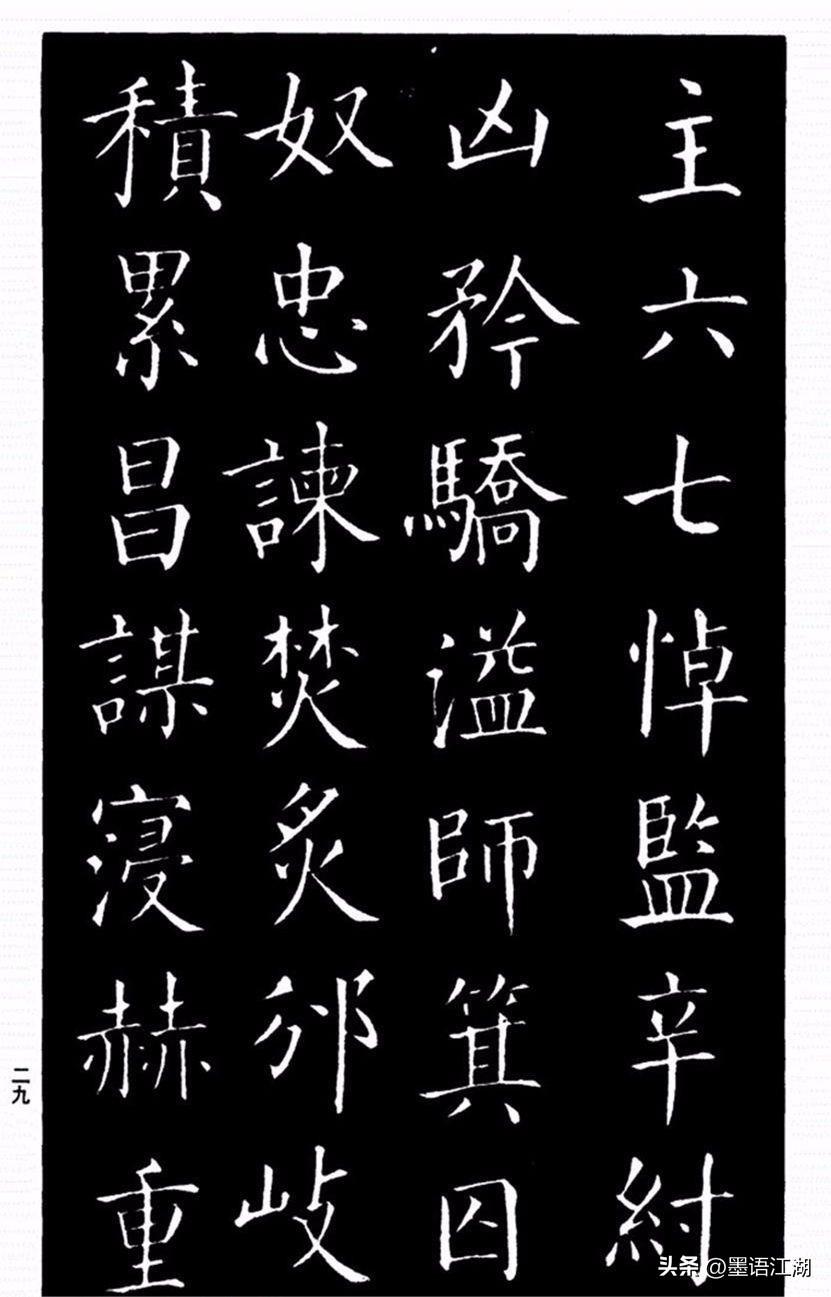 主六七悼監辛紂
凶矜驕溢師箕囚
奴忠諫焚炙邠歧
積累昌謀寖赫重
二九
头条 @墨语江湖